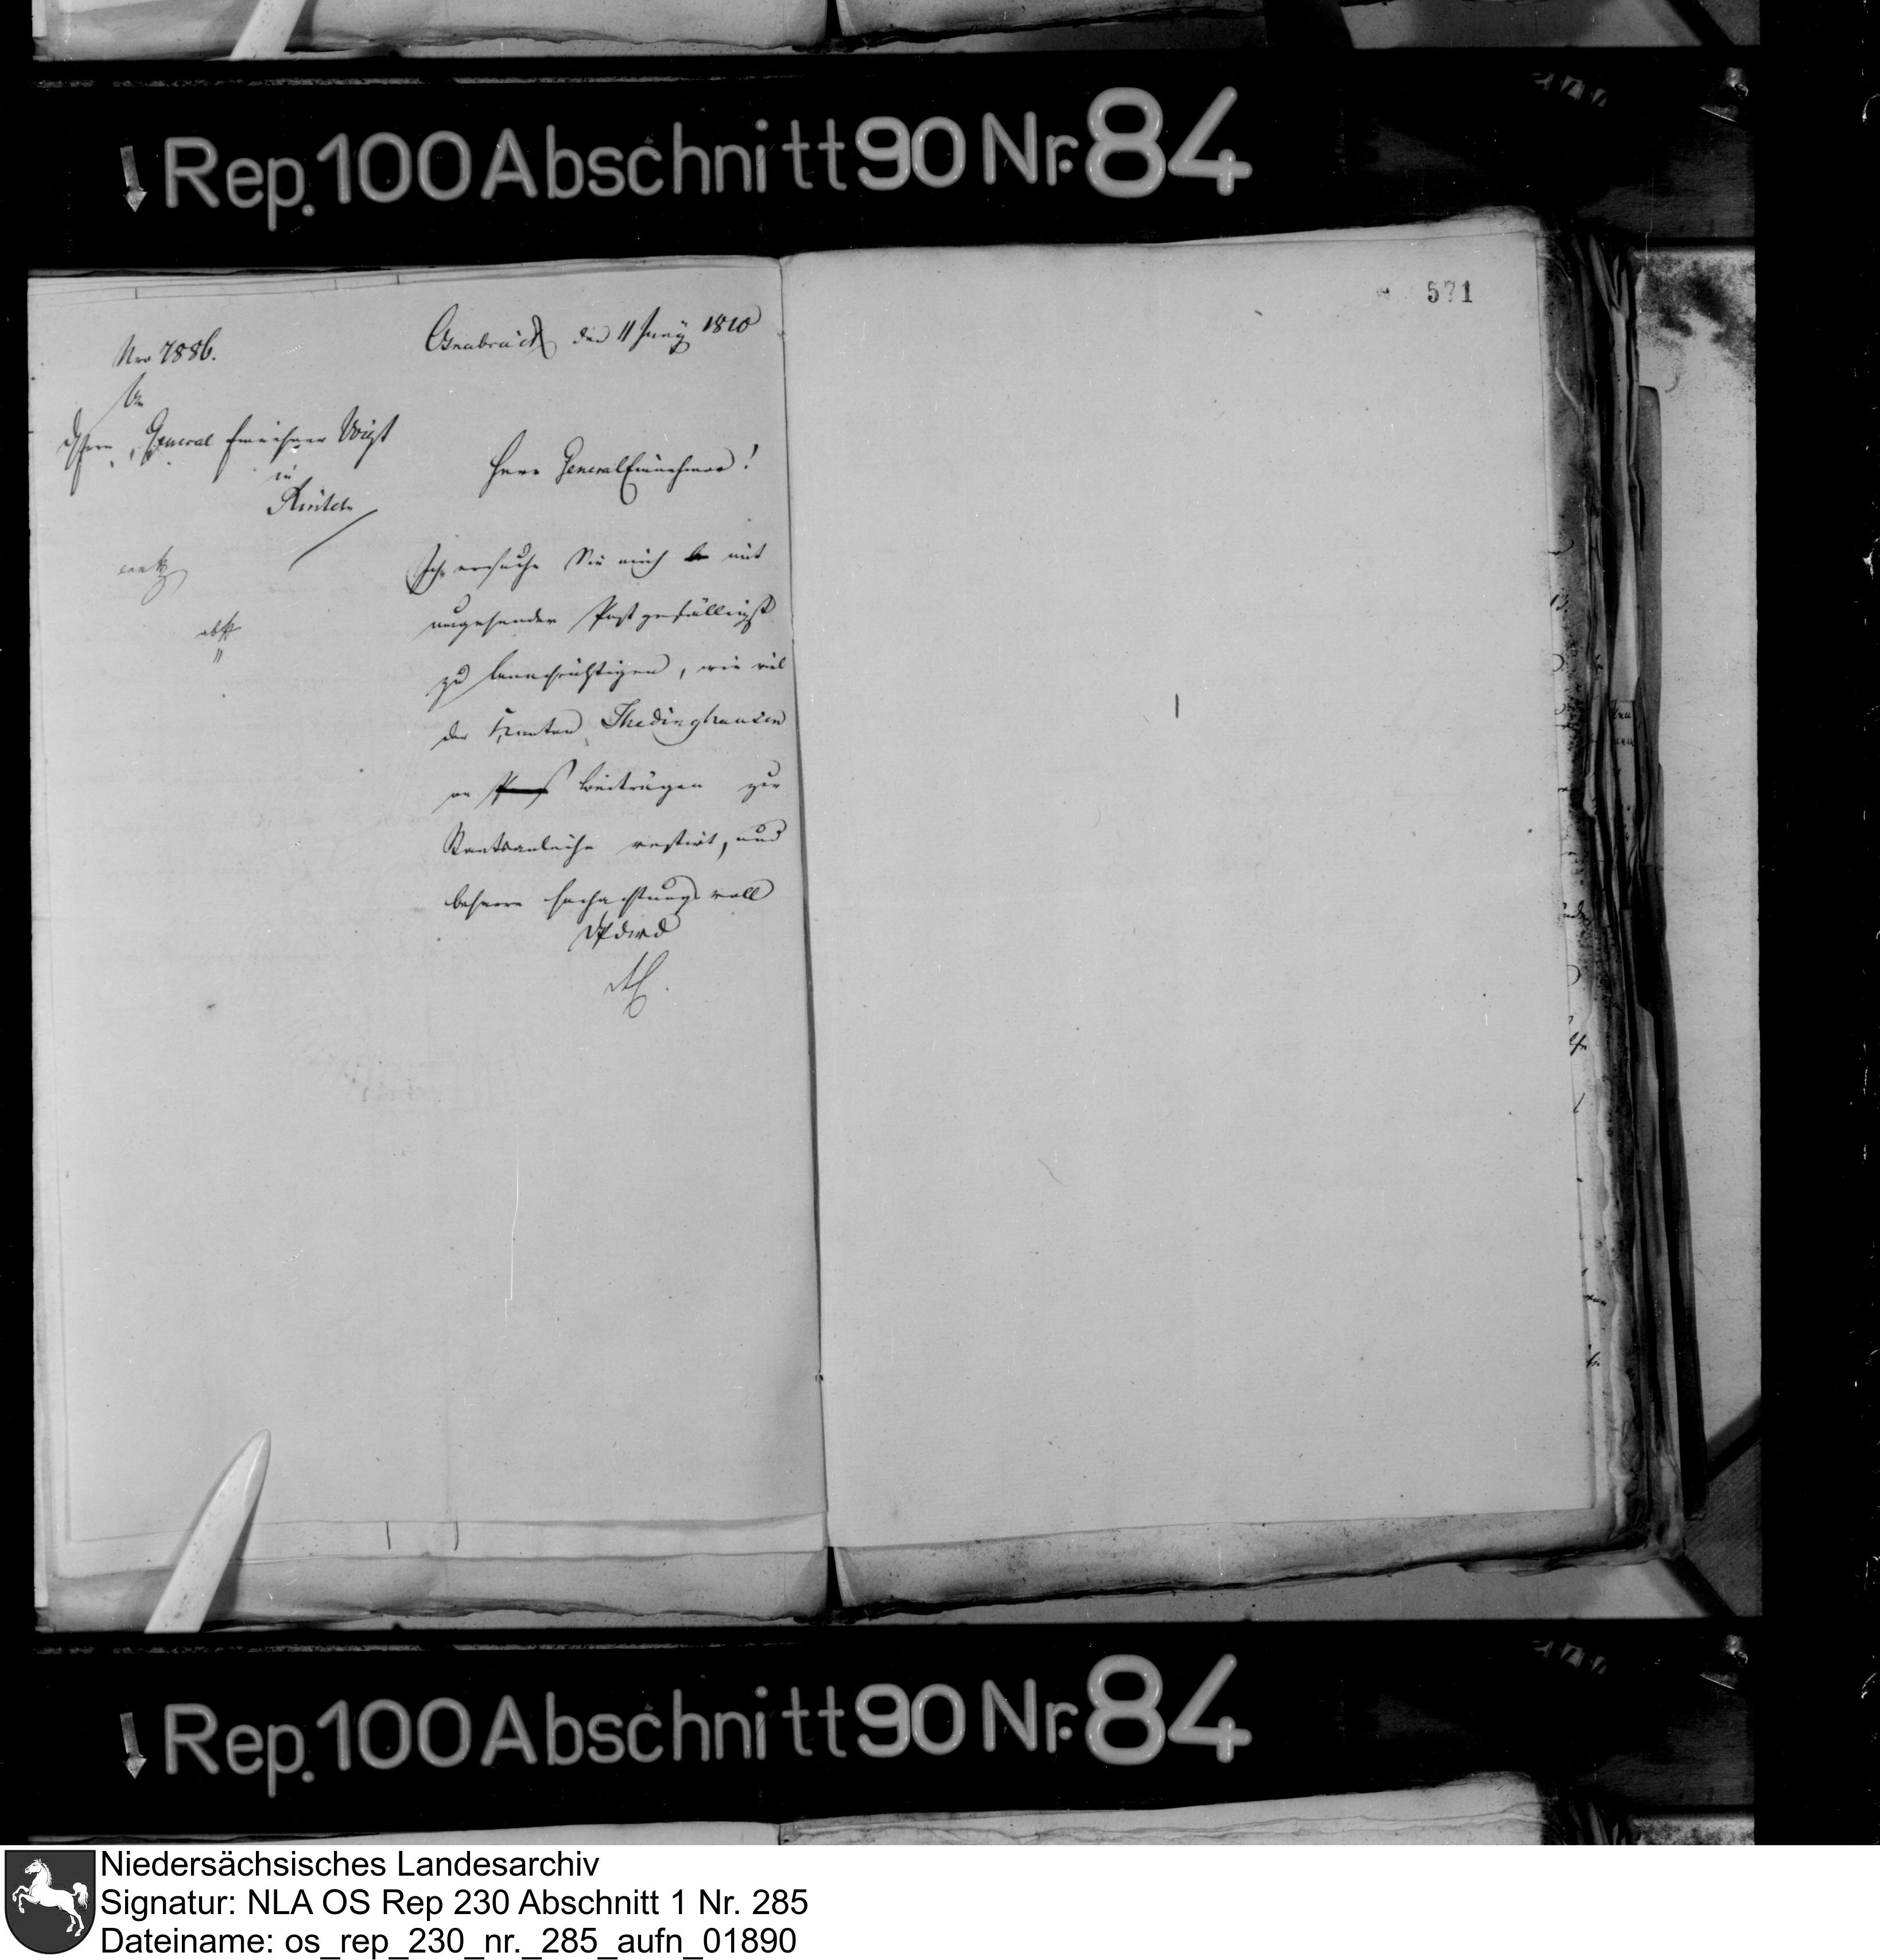 Rep. 100 Abschnitt 90 Nr. 84
571
Nro 7886.
Osnabrück den 11 Juny 1810
An
Herrn General Einnehmer Voigt
in
Rinteln
Herr General Einnehmer!
Ich ersuche Sie mich mit
umgehender Post gefälligst
zu benachrichtigen, wie viel
der Canton Thedinghausen
an Beiträgen zur
Staatsanleihe restirt, und
beharre hochachtungsvoll
Rep. 100 Abschnitt 90 Nr. 84
Niedersächsisches Landesarchiv
Signatur: NLA OS Rep 230 Abschnitt 1 Nr. 285
Dateiname: os_rep_230_nr._285_aufn_01890